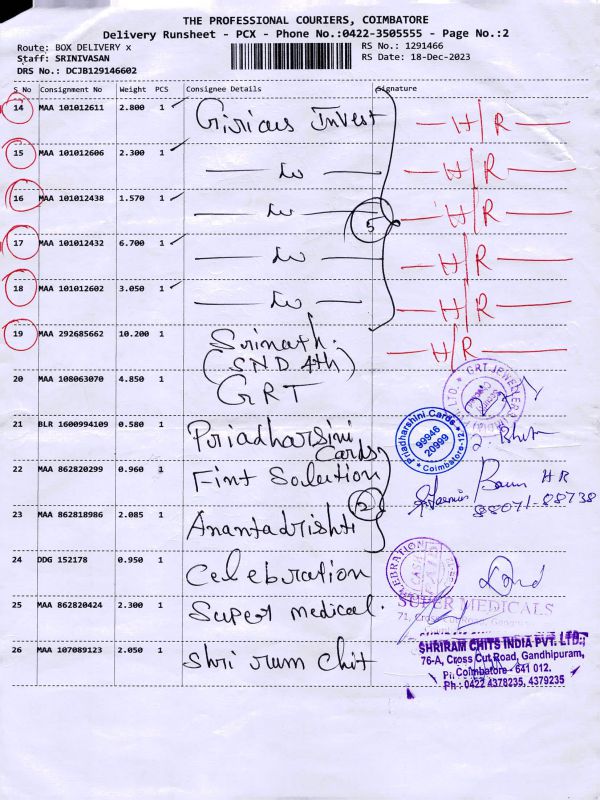 THE PROFESSIONAL COURIERS, COIMBATORE
Delivery Runsheet - PCX - Phone No.:0422-3505555 - Page No.:2
Route: BOX DELIVERY x RS No.: 1291466
Staff: SRINIVASAN RS Date: 18-Dec-2023
DRS No.: DCJB129146602
S No Consignment No Weight PCS Consignee Details Signature
14 MAA 101012611 2.800 1 Invest H/R
15 MAA 101012606 2.300 1 H/R
16 MAA 101012438 1.570 1 H/R
5
17 MAA 101012432 6.700 1 H/R
18 MAA 101012602 3.050 1 H/R
19 MAA 292685662 10.200 1 Srinath. H/R
(SND 4th)
20 MAA 108063070 4.850 1 GRT
GRT JEWELLERS
LTD.
21 BLR 1600994109 0.580 1 Priadharsini
Cards
Priadharshini Cards
99946
20999
Coimbatore-12
22 MAA 862820299 0.960 1 Fint Solution
HR
88071-88738
2
23 MAA 862818986 2.085 1 Anantadrishti
24 DDG 152178 0.950 1 Celebration
CELEBRATION
25 MAA 862820424 2.300 1 Super medical.
SUPER MEDICALS
71, Cross Cut Road,
26 MAA 107089123 2.050 1 Shri rum Chit
SHRIRAM CHITS INDIA PVT. LTD.,
76-A, Cross Cut Road, Gandhipuram,
Coimbatore - 641 012.
Ph : 0422 4378235, 4379235